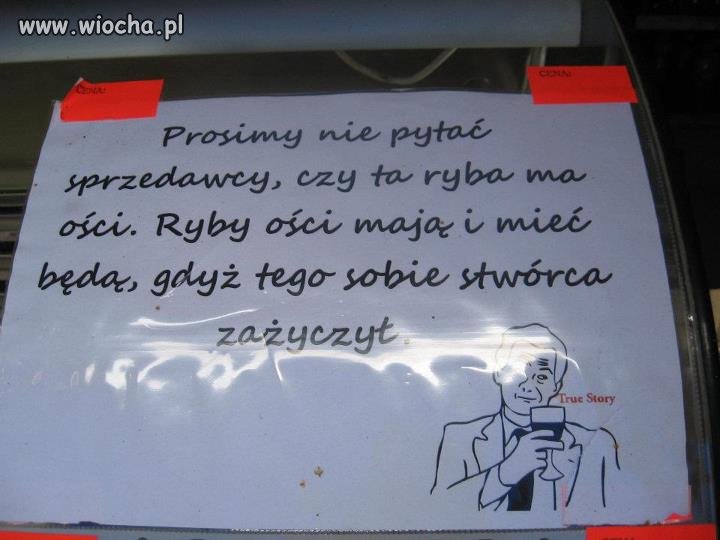 www.wiocha.pl
CENA:
CENA:
Prosimy nie pytać
sprzedawcy, czy ta ryba ma
ości. Ryby ości mają i mieć
będą, gdyż tego sobie stwórca
zażyczył.
True Story